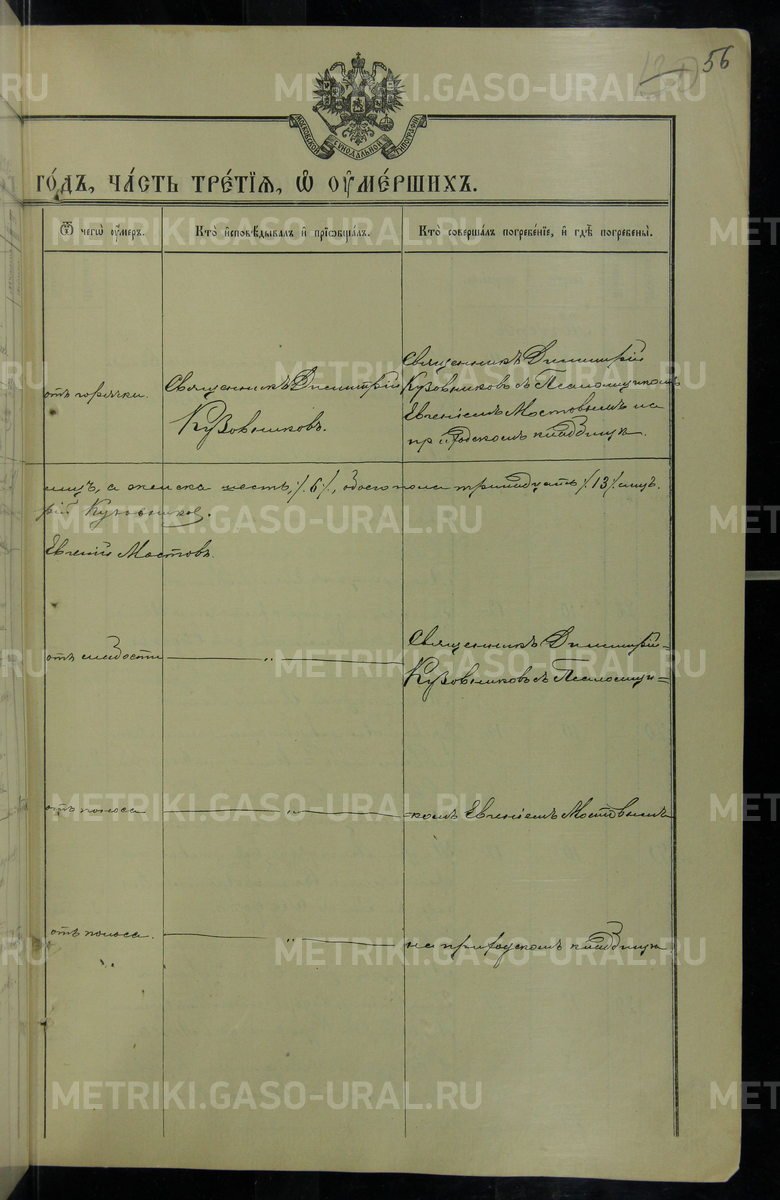 56
МОСКОВСКОЙ СѴНОДАЛЬНОЙ ТИПОГРАФІИ
го́дъ, ча́сть тре́тїѧ, ѡ҆ ᲂу҆ме́ршихъ.
Ѿ чегѡ̀ ᲂу҆́меръ.
Кто̀ и҆сповѣ́дывалъ и҆ прїѡбща́лъ.
Кто̀ соверша́лъ погребе́нїе, и҆ гдѣ̀ погребены̀.
отъ горячки.
Священникъ Димитрій
Кузовниковъ.
Священникъ Димитрій
Кузовниковъ съ Псаломщикомъ
Евгеніемъ Мостовымъ на
приходскомъ кладбищѣ.
лицъ, а женска шесть /.6/., обоего пола тринадцать /.13/. лицъ.
рій Кузовниковъ.
Евгеній Мостовъ.
отъ слабости
"
Священникъ Димитрій
Кузовниковъ съ Псаломщи=
отъ поноса
"
=комъ Евгеніемъ Мостовымъ
отъ поноса.
"
на приходскомъ кладбищѣ
METRIKI.GASO-URAL.RU